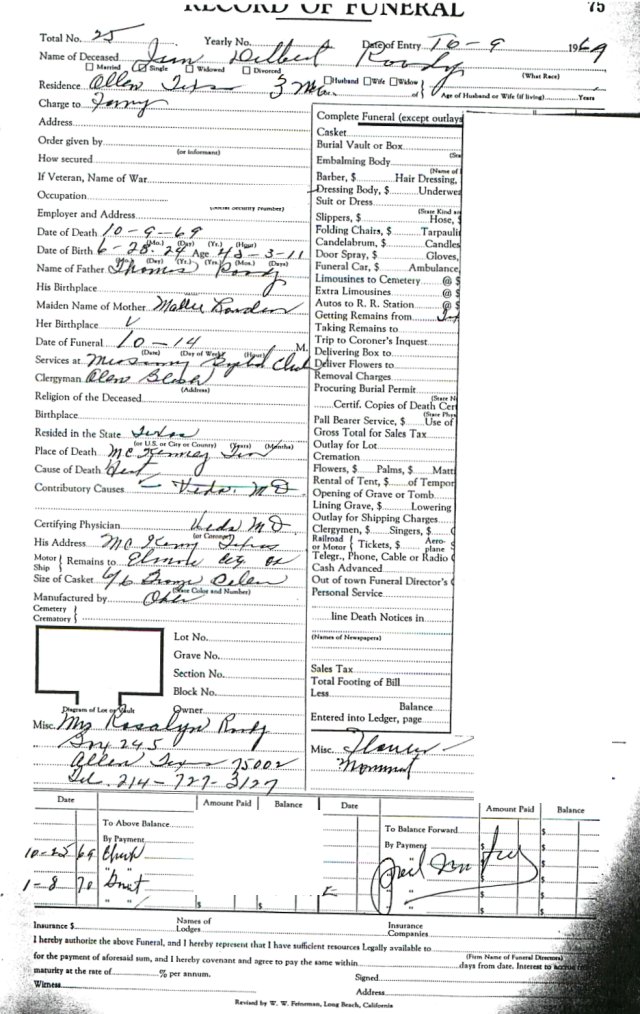 RECORD OF FUNERAL 75
Total No. 25 Yearly No. Date of Entry 10-9 1969
Name of Deceased Jim Delbert Roody
Married Single Widowed Divorced (What Race)
Residence Allen Texas Husband Wife Widow of Age of Husband or Wife (if living) Years
Charge to Family
Address
Order given by
(or informant)
How secured
If Veteran, Name of War
Occupation
(Social Security Number)
Employer and Address
Date of Death 10-9-69
(Mo.) (Day) (Yr.) (Hour)
Date of Birth 6-28-24 Age 45-3-11
(Mo.) (Day) (Yr.) (Yrs.) (Mos.) (Days)
Name of Father Thomas Roody
His Birthplace
Maiden Name of Mother Mallie
Her Birthplace
Date of Funeral 10-14 M.
(Date) (Day of Week) (Hour)
Services at
Clergyman
(Address)
Religion of the Deceased
Birthplace
Resided in the State Texas
(or U.S. or City or County) (Years) (Months)
Place of Death McKinney Tex
Cause of Death
Contributory Causes M D
Certifying Physician M D
(or Coroner)
His Address McKinney Texas
Motor Ship Remains to Elmore City Ok
Size of Casket 6/6
(State Color and Number)
Manufactured by
Cemetery
Crematory
Lot No.
Grave No.
Section No.
Block No.
Owner
Diagram of Lot or Vault
Misc. Mrs Rosalyn Roody
Box 245
Allen Texas 75002
Tel. 214-727-3127
Complete Funeral (except outlays
Casket
Burial Vault or Box
Embalming Body
(Name of
Barber, $ Hair Dressing,
Dressing Body, $ Underwea
Suit or Dress
(State Kind an
Slippers, $ Hose, $
Folding Chairs, $ Tarpauli
Candelabrum, $ Candles
Door Spray, $ Gloves,
Funeral Car, $ Ambulance,
Limousines to Cemetery @ $
Extra Limousines @ $
Autos to R. R. Station @ $
Getting Remains from
Taking Remains to
Trip to Coroner's Inquest
Delivering Box to
Deliver Flowers to
Removal Charges
Procuring Burial Permit
(State N
Certif. Copies of Death Cert
(State Phys
Pall Bearer Service, $ Use of
Gross Total for Sales Tax
Outlay for Lot
Cremation
Flowers, $ Palms, $ Matt
Rental of Tent, $ of Tempor
Opening of Grave or Tomb
Lining Grave, $ Lowering
Outlay for Shipping Charges
Clergymen, $ Singers, $
Railroad or Motor Tickets, $ Aeroplane
Telegr., Phone, Cable or Radio
Cash Advanced
Out of town Funeral Director's
Personal Service
line Death Notices in
(Names of Newspapers)
Sales Tax
Total Footing of Bill
Less
Balance
Entered into Ledger, page
Misc. Flowers
Monument
Date Amount Paid Balance Date Amount Paid Balance
To Above Balance To Balance Forward
By Payment By Payment
10-25 69 Check
1-8 70
Insurance $ Names of Lodges Insurance Companies
I hereby authorize the above Funeral, and I hereby represent that I have sufficient resources Legally available to
(Firm Name of Funeral Directors)
for the payment of aforesaid sum, and I hereby covenant and agree to pay the same within days from date. Interest to accrue from
maturity at the rate of % per annum. Signed
Witness Address
Revised by W. W. Feineman, Long Beach, California